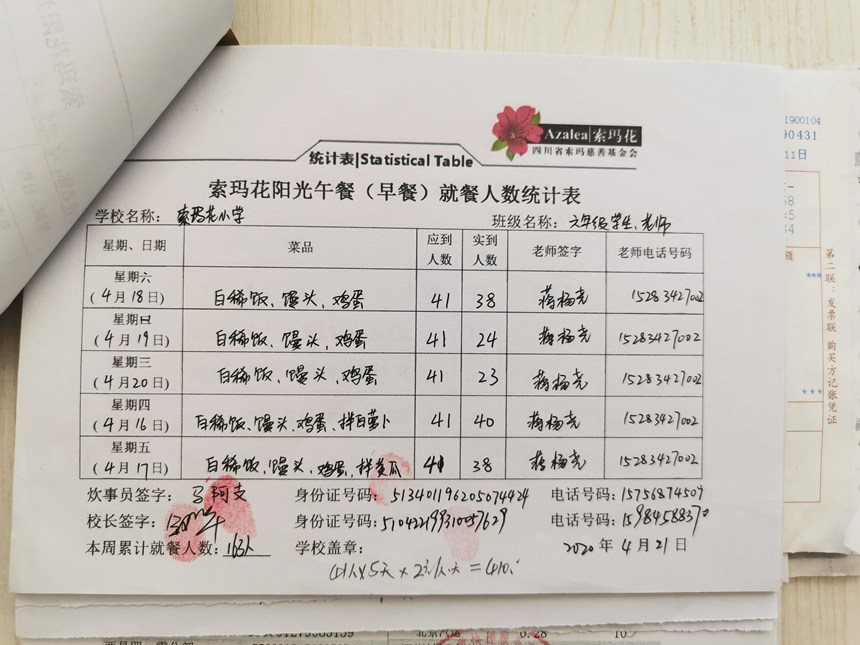 Azalea|索玛花
四川省索玛慈善基金会
统计表|Statistical Table
索玛花阳光午餐（早餐）就餐人数统计表
学校名称：索玛花小学 班级名称：六年级学生、老师
星期、日期 菜品 应到人数 实到人数 老师签字 老师电话号码
星期六
(4月18日) 白稀饭、馒头、鸡蛋 41 38 蒋杨尧 15283427002
星期日
(4月19日) 白稀饭、馒头、鸡蛋 41 24 蒋杨尧 15283427002
星期三
(4月20日) 白稀饭、馒头、鸡蛋 41 23 蒋杨尧 15283427002
星期四
(4月16日) 白稀饭、馒头、鸡蛋、拌白萝卜 41 40 蒋杨尧 15283427002
星期五
(4月17日) 白稀饭、馒头、鸡蛋、拌黄瓜 41 38 蒋杨尧 15283427002
炊事员签字：马阿支 身份证号码：513401196205074424 电话号码：15756874507
校长签字： 身份证号码：510422199310057629 电话号码：15984588370
本周累计就餐人数：163人 学校盖章： 2020年4月21日
41人×5天×2元/人·天=410.
1900104
90431
11日
第二联：发票联 购买方记账凭证